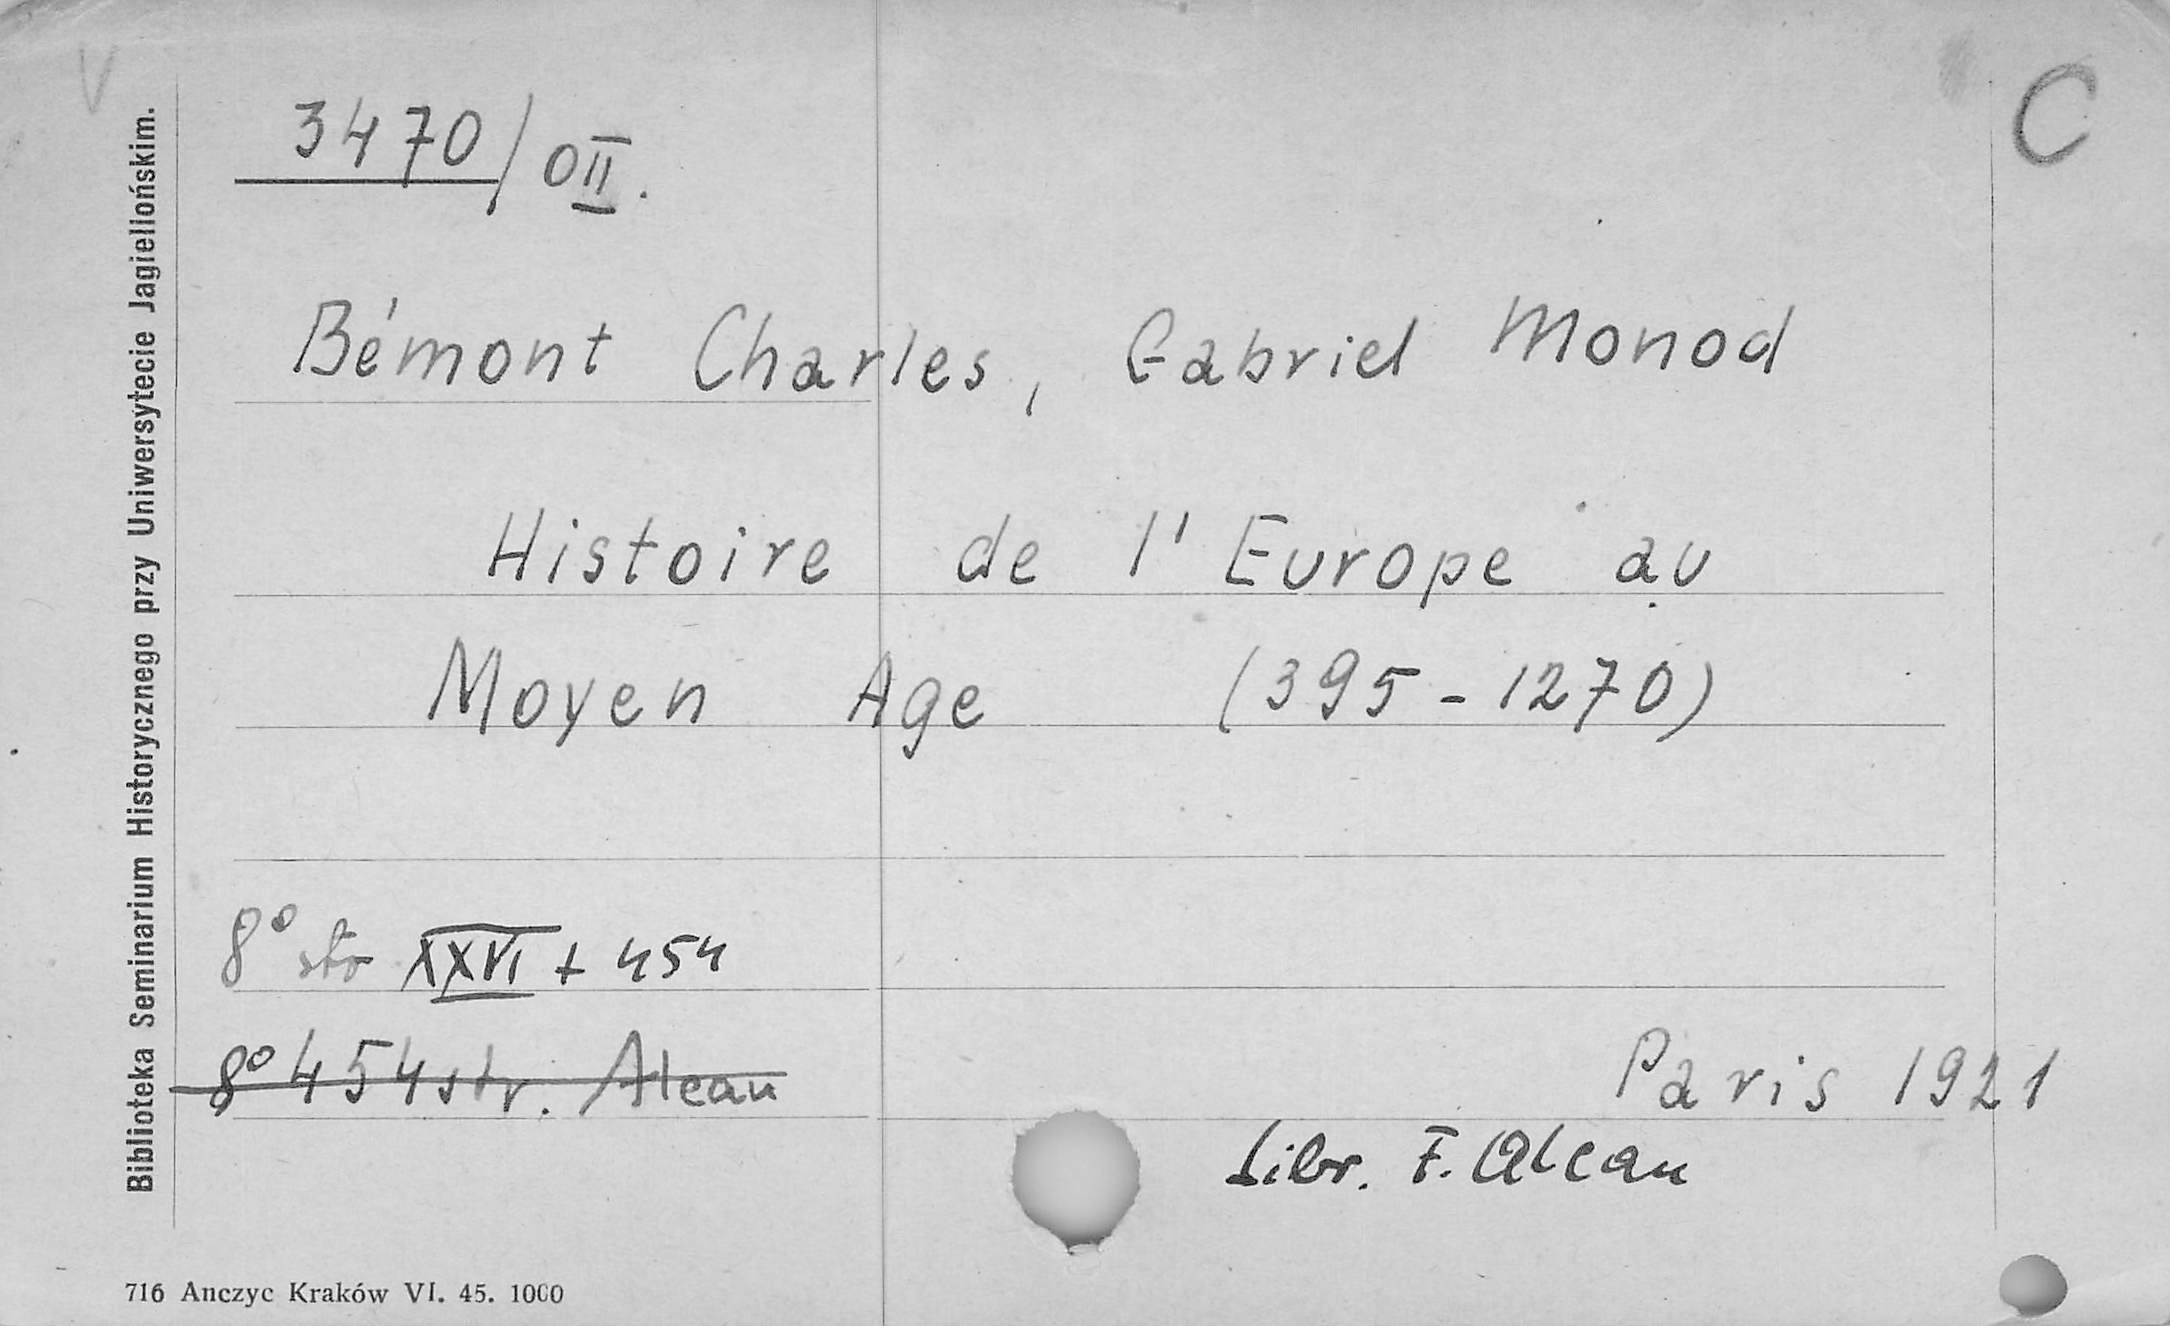 V
C
3470/OII.
Bémont Charles, Gabriel Monod
Histoire de l'Europe au
Moyen Age (395-1270)
8° str XXVI + 454
8° 454 str. Alcan
Paris 1921
Libr. F. Alcan
Biblioteka Seminarium Historycznego przy Uniwersytecie Jagiellońskim.
716 Anczyc Kraków VI. 45. 1000